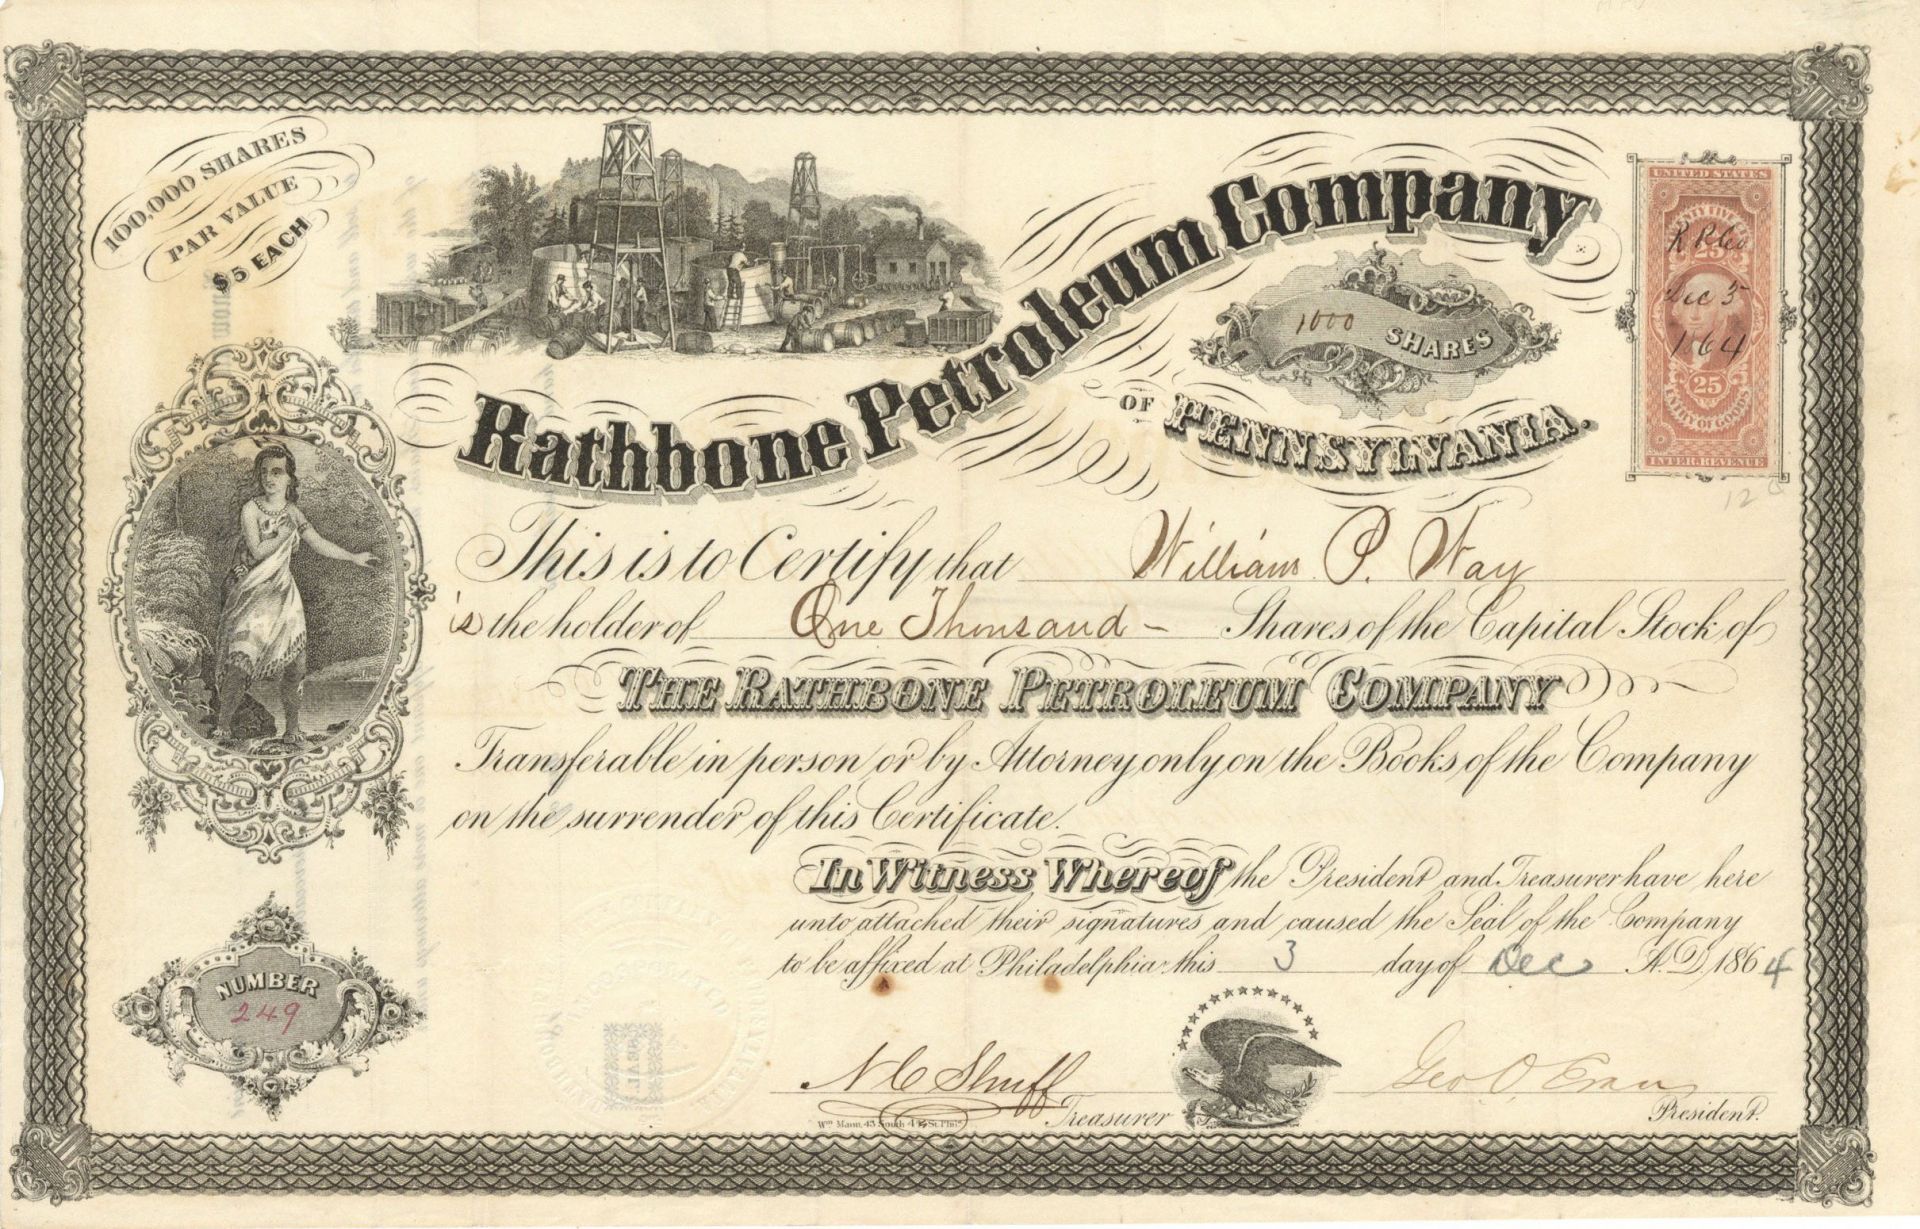 100,000 SHARES
PAR VALUE
$5 EACH
Rathbone Petroleum Company
OF PENNSYLVANIA.
1000 SHARES
UNITED STATES
TWENTY FIVE
R P Co
25
Dec 3
1864
25
ENTRY OF GOODS
INTER. REVENUE
12
This is to Certify that William P. Way
is the holder of One Thousand - Shares of the Capital Stock of
THE RATHBONE PETROLEUM COMPANY
Transferable in person or by Attorney only on the Books of the Company
on the surrender of this Certificate.
In Witness Whereof the President and Treasurer have here
unto attached their signatures and caused the Seal of the Company
to be affixed at Philadelphia this 3 day of Dec A.D. 1864
NUMBER
249
N C Shuff Treasurer
Geo O. Evans President.
Wm Mann, 43 South 4th St. Phila.